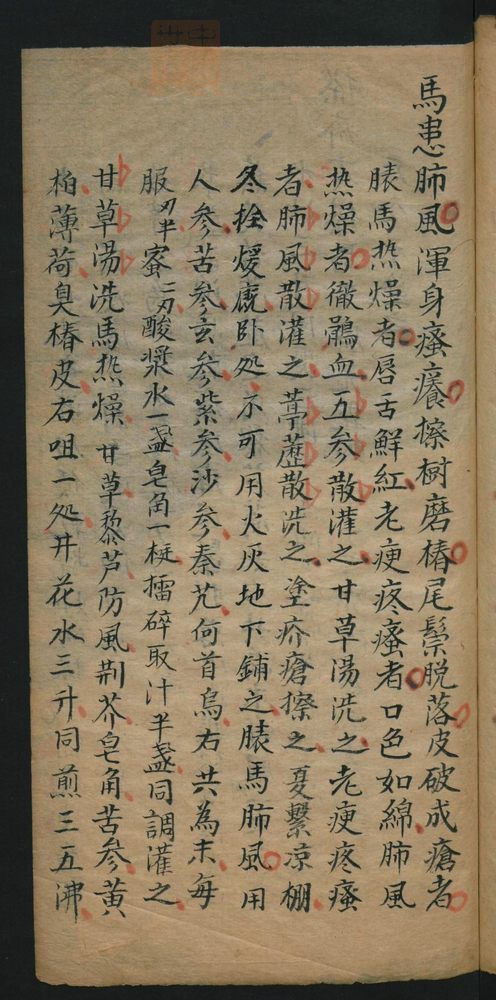 馬患肺風渾身瘙癢擦樹磨樁尾鬃脫落皮破成瘡者
膘馬热燥者唇舌鮮紅老瘦疼瘙者口色如綿肺風
热燥者徹鶻血五参散灌之甘草湯洗之老瘦疼瘙
者肺風散灌之葶藶散洗之塗疥瘡擦之夏繫凉棚
冬拴煖廐卧处不可用火灰地下鋪之膘馬肺風用
人参苦参玄参紫参沙参秦艽何首烏右共為末每
服刄半蜜二刄酸漿水一盞皂角一梃擂碎取汁半盞同調灌之
甘草湯洗馬热燥 甘草藜芦防風荆芥皂角苦参黄
柏薄荷臭椿皮右咀一处井花水三升同煎三五沸